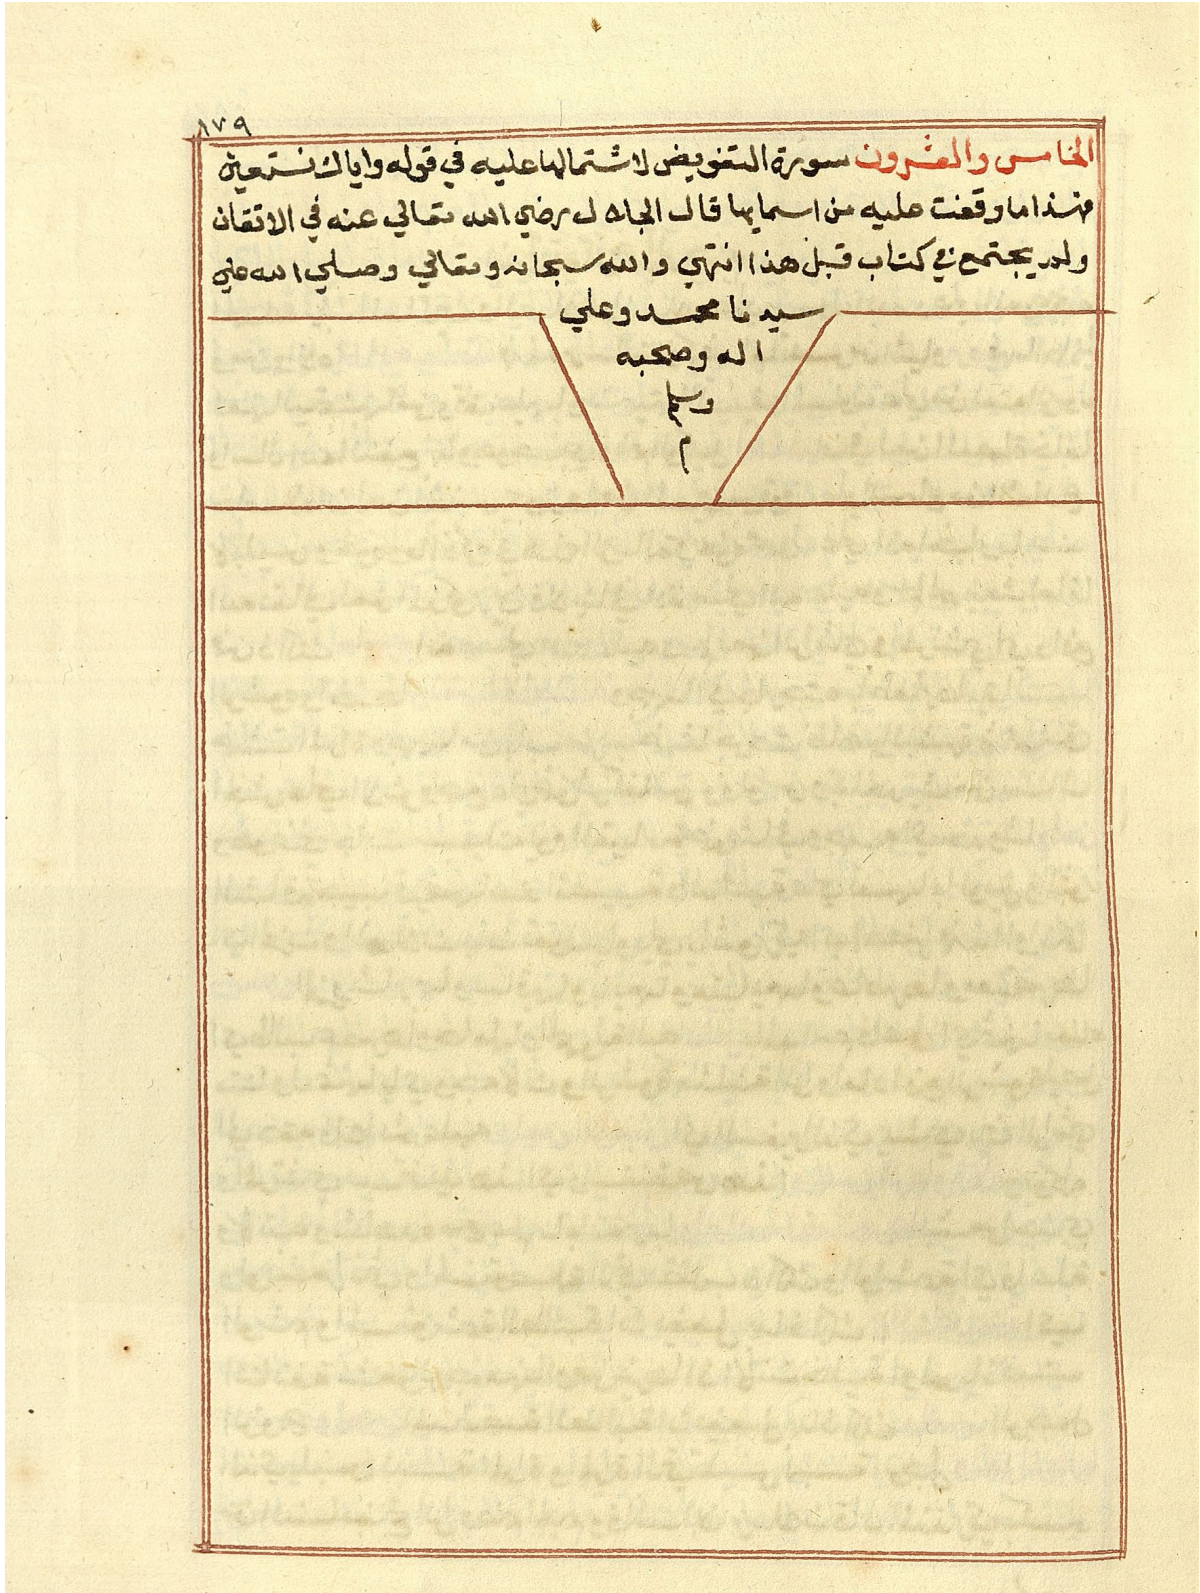 ٨٧٩
الخامس والعشرون سورة التفويض لاشتمالها عليه في قوله واياك نستعين
فهذا ما وقفت عليه من اسمايها قال الجلال رضي الله تعالي عنه في الاتقان
ولم يجتمع في كتاب قبل هذا انتهي والله سبحانه وتعالي وصلي الله علي
سيدنا محمد وعلي
اله وصحبه
وسلم
م